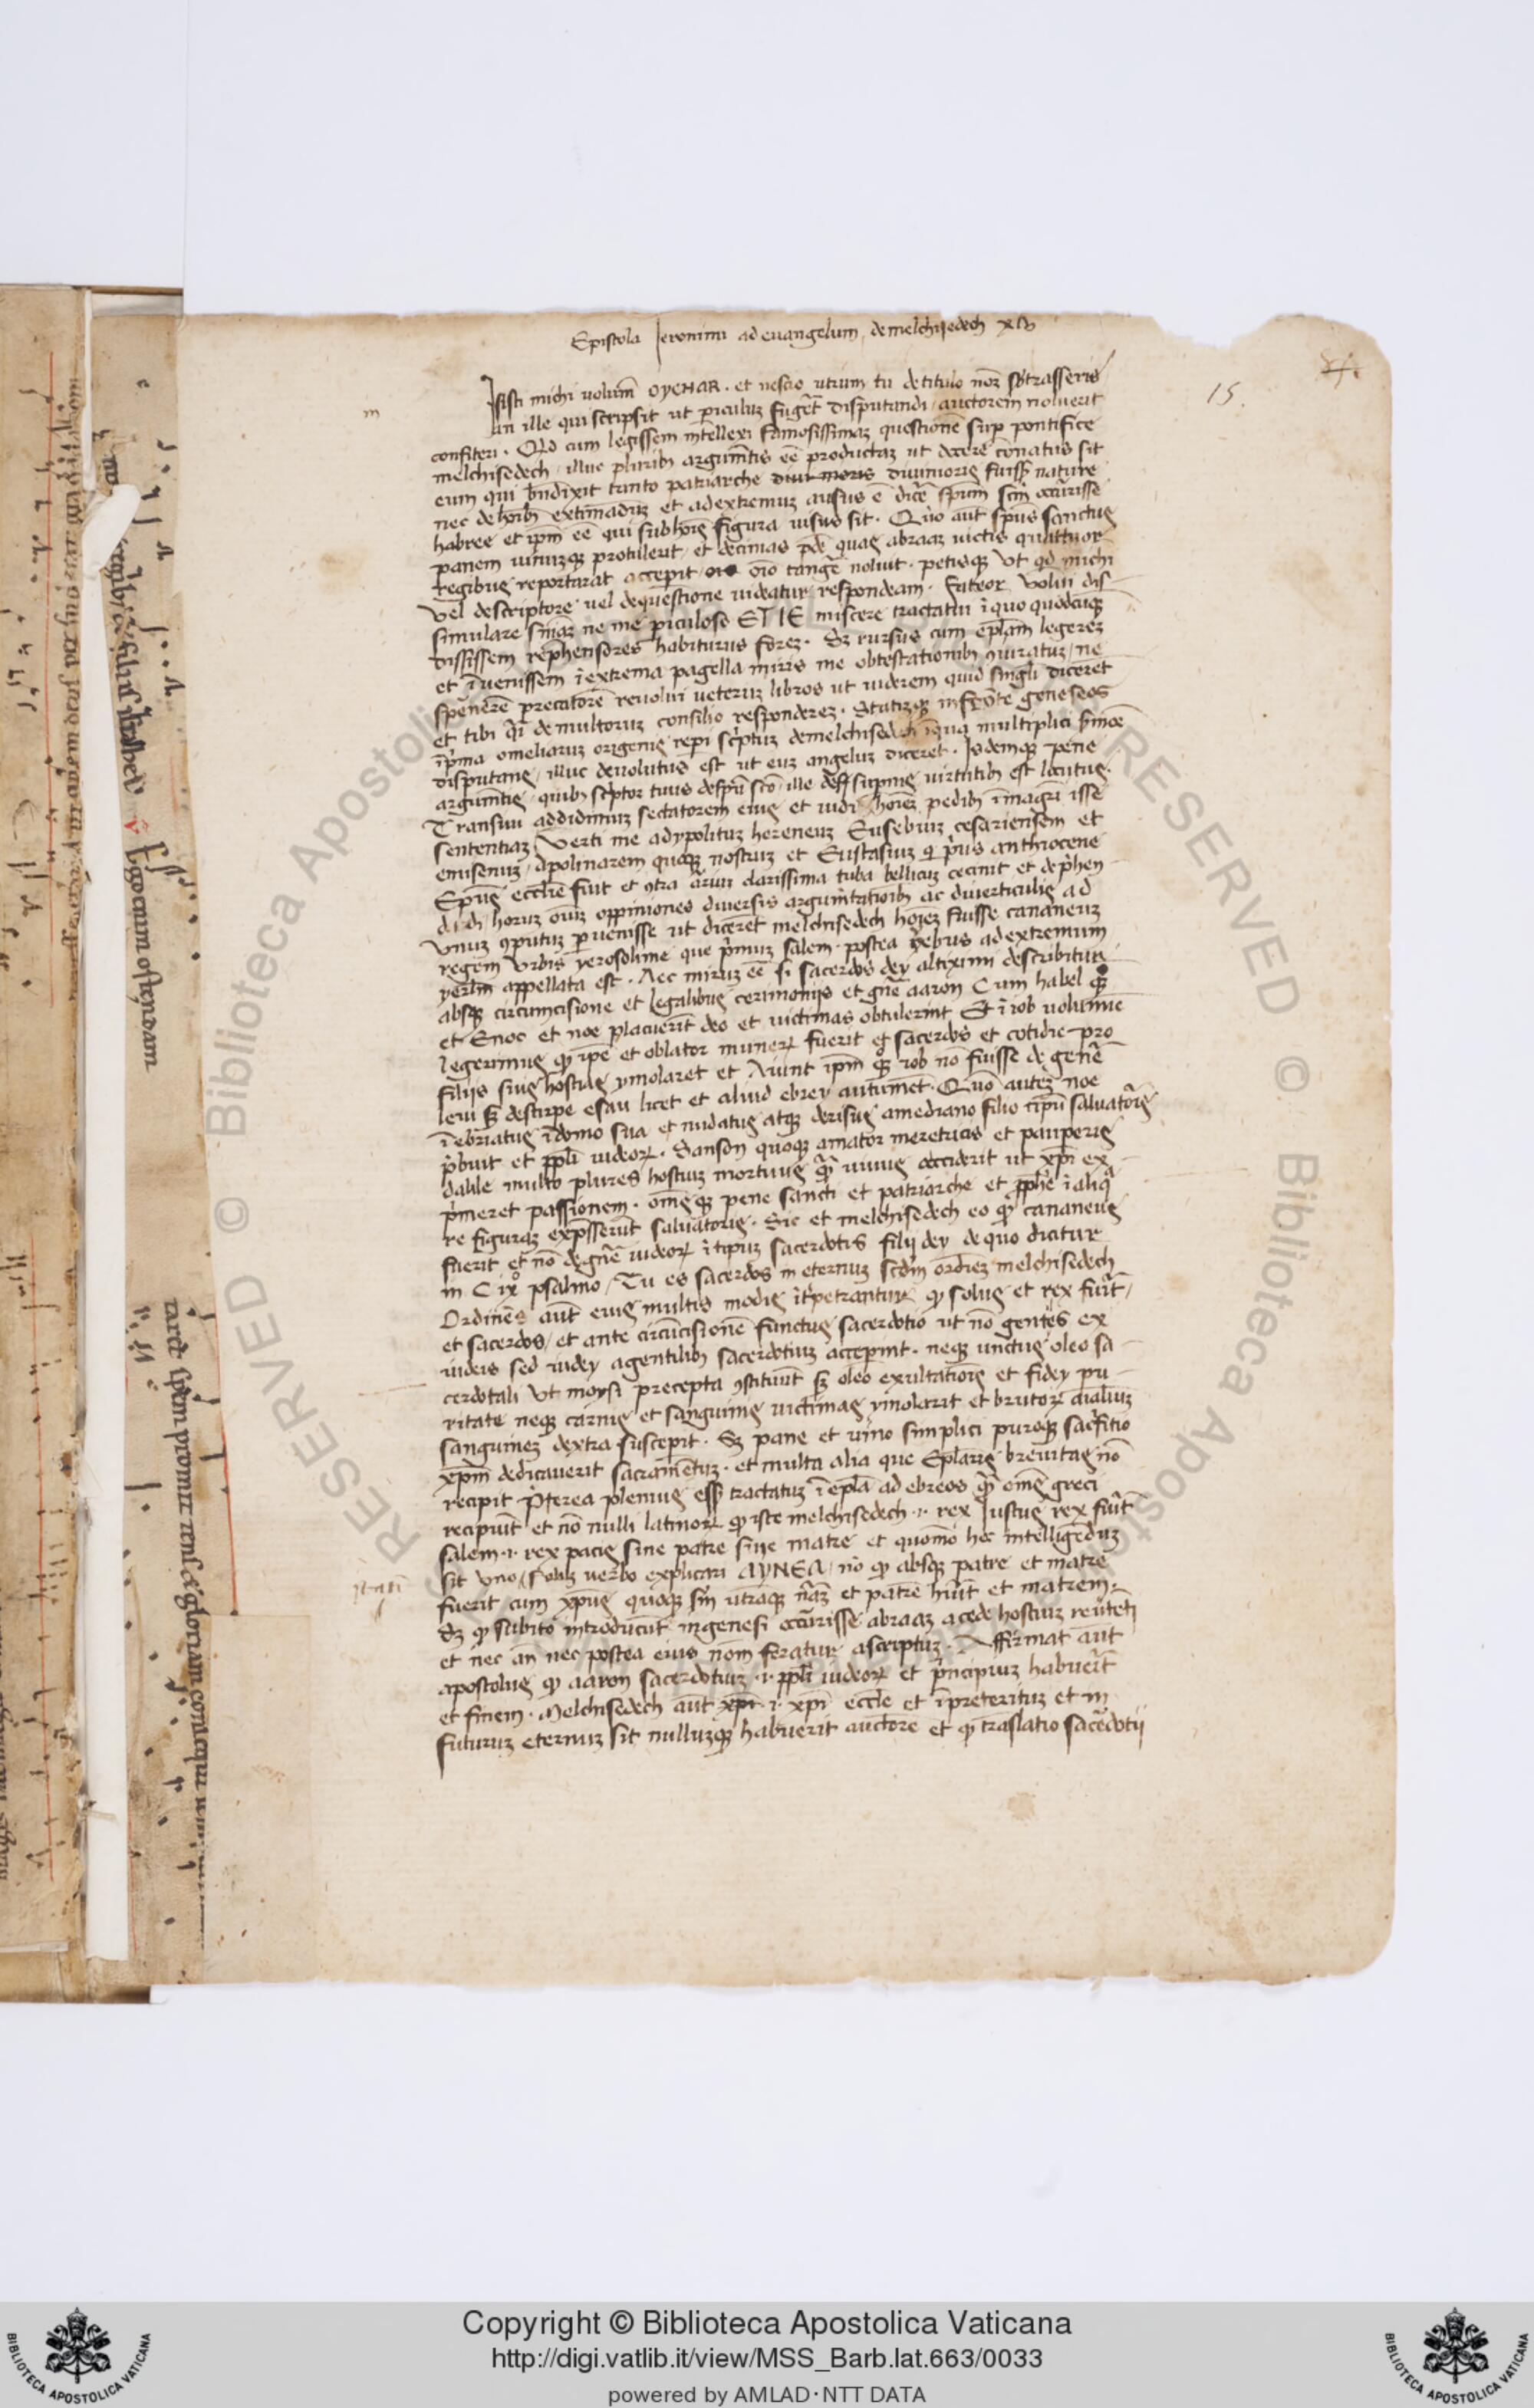 Epistola Ieronimi ad euangelum, de melchisedech xlv
15.
m
Misisti michi uolum̄ OYENAR. et nescio utrum tu de titulo nom̄ sbtrasseris
an ille qui scripsit ut ꝑiculuz fuget̄ disputandi / auctorem noluerit
confiteri. Qd cum legissem intellexi famosissimaz questionē sup pontifice
melchisedech / illuc pluribꝫ argum̄tis eē productaz ut docere conatus sit
eum qui bn̄dixit tanto patriarche diui moris diuinioris fuisse nature
nec de hoībꝫ extimāduz et ad extremuz ausus ē dicē sp̄um scm̄ occurisse
habree et ip̄m eē qui sub hoīs figura uisus sit. Quō aut̄ sp̄us sanctus
panem uinuzqꝫ protulerit / et decimas p̄de quas abraaz uictis quattuor
regibus reportarat accepit / oīo tangē noluit. petisqꝫ ut qd michi
vel de scriptore uel de questione uideatur respondeam. Fateor volui dis-
simulare sn̄iaz ne me ꝑiculose ETIE miscere tractatui ī quo quodcūqꝫ
dississem rephensores habiturus forez. Sꝫ rursus cum epl̄am legerez
et īuenissem ī extrema pagella miris me obtestationibꝫ ꝯiuratuz / ne
spēnerē precatorē reuolui ueteruz libros ut uiderem quid singli dicerēt
et tibi q̄i de multoruz consilio responderez. Statizqꝫ in frōte geneseos
īpͥma omeliaruz origenis repi scͥptuz de melchisedech īqua multiplici sͬmōe
disputans / illuc deuolutus est ut euz angeluz diceret. Isdemqꝫ pene
argum̄tis / quibꝫ scͥptor tuus de sp̄u scō / ille de supnis uirtutibꝫ est locutus.
Transiui ad didimuz sectatorem eius et uidi hoīez pedibꝫ ī magrī isse
sententiaz Verti me ad ypolituz hereneuz Eusebiuz cesariensem et
emisenuz / Apolinarem quoqꝫ nostruz et Eustasiuz qͥ pͥus anthiocene
Ep̄us eccl̄ie fuit et ꝯtra ariuz clarissima tuba bellicuz cecinit et deprehen-
di di horuz oīuz oppiniones diuersis argum̄tatioībꝫ ac diuerticulis ad
vnuz ꝯputuz ꝑuenisse ut dicerēt melchisedech hoīez fuisse cananeuz
regem urbis yerosolime que pͥmuz salem. postea yebus ad extremum
yerl̄m appellata est. Nec miruz eē si sacerdos dey altiximi describitur
absqꝫ circumcisione et legalibus cerimonijs et gn̄e aaron Cum habel qꝫ
et Enoc et noe placuerīt deo et uictimas obtulerint Et ī iob uolumīe
legerimus qꝫ ip̄e et oblator muneꝝ fuerit et sacerdos et cotidie pro
filijs suis hostias ymolaret et Aiunt ip̄m qꝫ iob nō fuisse de genē
leui sꝫ de stirpe esau licet et aliud ebrey autumēt. Quō autez noe
īebriatus ī domo sua et nudatus atqꝫ derisus a mediano filio tip̄u saluatoris
pͬbuit et ppl̄i iudeoꝝ. Sanson quoqꝫ amator meretricis et pauperis
dalile multo plures hostiuz mortuus qꝫ uiuus occiderit ut xp̄i ex-
pͥmeret passionem. om̄esqꝫ pene sancti et patriarche et pphē ī aliqͣ
re figuraz expͬsserunt saluatoris. Sic et melchisedech eo qꝫ cananeus
fuerit et nō de gn̄e iudeoꝝ ī tipuz sacerdotis filij dey de quo dicitur
in C ix° psalmo / Tu es sacerdos in eternuz scd̄m ordīez melchisedech
Ordinēs aut̄ eius multis modis īt̄petrantur qꝫ solus et rex fuit̄ /
et sacerdos / et ante circūcisionē functus sacerdotio ut nō gentes ex
iudeis sed iudey a gentilibꝫ sacerdotiuz acceperint. neqꝫ unctus oleo sa-
cerdotali ut moysi precepta ꝯstituūt sꝫ oleo exultatiois et fidey pu-
ritate neqꝫ carnis et sanguinis uictimas ymolarit et brutoꝝ aīaliuz
sanguinez dextra susceperit. Sꝫ pane et uino simplici puroqꝫ sacͥfitio
xp̄m dedicauerit sacramentuz. et multa alia que Epl̄aris breuitas nō
recipit. Pͬterea plenius esse tractatuz ī epl̄a ad ebreos qꝫ om̄es greci
recipiūt et nō nulli latinoꝝ qꝫ iste melchisedech .i. rex Iustus rex fuit̄
salem .i. rex pacis sine patre siue matre et quomō hoc intelligēduz
sit vno solus uerbo explicari AYNEA / nō qꝫ absqꝫ patre et matre
fuerit cum xp̄us quoqꝫ sm̄ utrāqꝫ nāz et patrē hūit et matrem.
Sꝫ qꝫ subito introducūt in genesi occurisse abraaz a cede hostiuz reuīteti
et nec an̄ nec postea eius nom̄ feratur ascriptuz. Affirmat aut̄
apostolus qꝫ aaron sacerdotiuz .i. ppl̄i iudeoꝝ et pͥncipiuz habuerīt
et finem. Melchisedech aut̄ xp̄i .i. xp̄i eccl̄e et ī preterituz et in
futuruz eternuz sit nulluzqꝫ habuerit auctorē et qꝫ traslatio sacerdotij
Ego enim ostendam
Copyright © Biblioteca Apostolica Vaticana
http://digi.vatlib.it/view/MSS_Barb.lat.663/0033
powered by AMLAD·NTT DATA